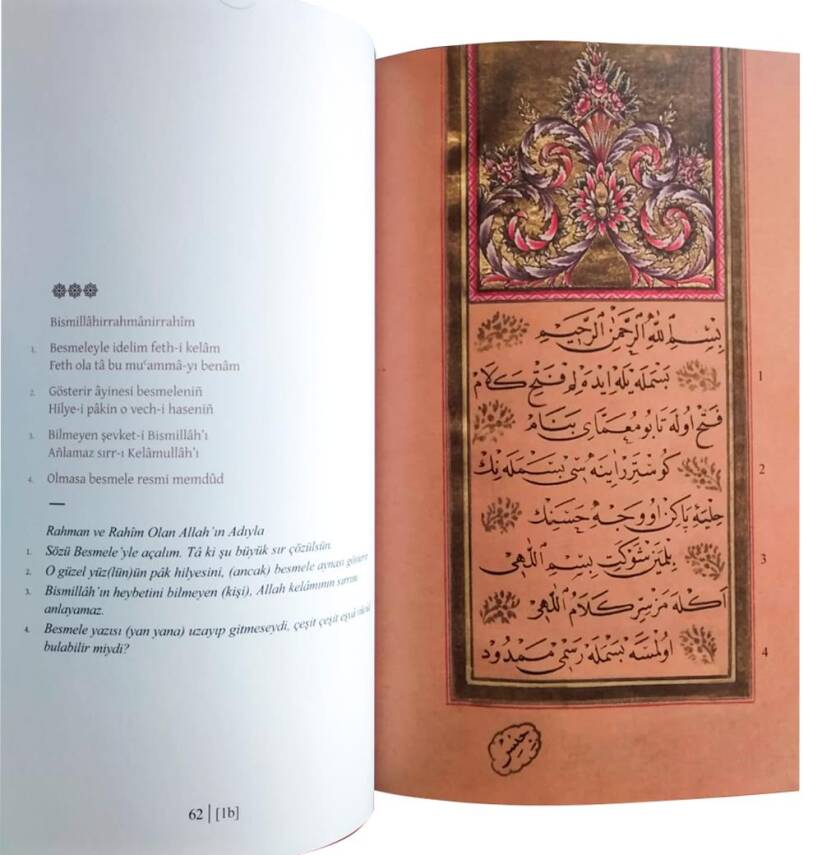 Bismillâhirrahmânirrahîm
1. Besmeleyle idelim feth-i kelâm
Feth ola tâ bu muʿammâ-yı benâm
2. Gösterir âyinesi besmeleniñ
Hilye-i pâkin o vech-i haseniñ
3. Bilmeyen şevket-i Bismillâh'ı
Añlamaz sırr-ı Kelâmullâh'ı
4. Olmasa besmele resmi memdûd
Rahman ve Rahîm Olan Allah'ın Adıyla
1. Sözü Besmele'yle açalım. Tâ ki şu büyük sır çözülsün.
2. O güzel yüz(lün)ün pâk hilyesini, (ancak) besmele aynası
3. Bismillâh'ın heybetini bilmeyen (kişi), Allah kelâmının sırrını
anlayamaz.
4. Besmele yazısı (yan yana) uzayıp gitmeseydi, çeşit çeşit eşyâ
bulabilir miydi?
62 | [1b]
بِسْمِ اللهِ الرَّحْمٰنِ الرَّحِيمِ
بسمله يله ايده لم فتح كلام 1
فتح اوله تا بو معماى بنام
كوسترر اينه سى بسمله نك 2
حليۀ پاكن او وجه حسنك
بلمين شوكت بسم اللهى 3
اكله مز سر كلام اللهى
اولمسه بسمله رسمى ممدود 4